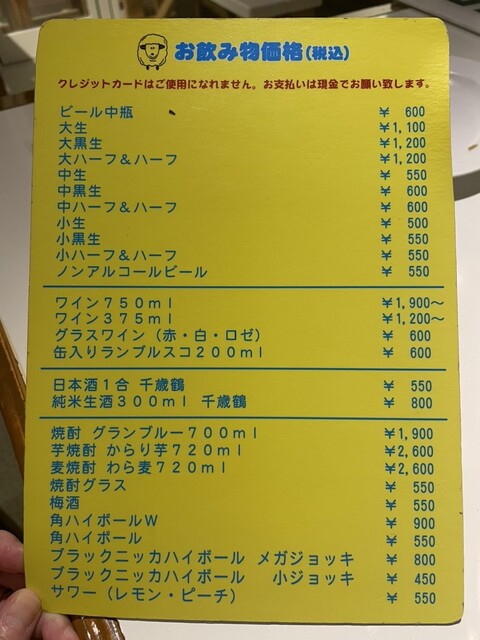 お飲み物価格(税込)
クレジットカードはご使用になれません。お支払いは現金でお願い致します。
ビール中瓶 ¥ 600
大生 ¥1,100
大黒生 ¥1,200
大ハーフ＆ハーフ ¥1,200
中生 ¥ 550
中黒生 ¥ 600
中ハーフ＆ハーフ ¥ 600
小生 ¥ 500
小黒生 ¥ 550
小ハーフ＆ハーフ ¥ 550
ノンアルコールビール ¥ 550
ワイン７５０ｍｌ ¥1,900～
ワイン３７５ｍｌ ¥1,200～
グラスワイン（赤・白・ロゼ） ¥ 600
缶入りランブルスコ２００ｍｌ ¥ 600
日本酒１合 千歳鶴 ¥ 550
純米生酒３００ｍｌ 千歳鶴 ¥ 800
焼酎 グランブルー７００ｍｌ ¥1,900
芋焼酎 からり芋７２０ｍｌ ¥2,600
麦焼酎 わら麦７２０ｍｌ ¥2,600
焼酎グラス ¥ 550
梅酒 ¥ 550
角ハイボールＷ ¥ 900
角ハイボール ¥ 550
ブラックニッカハイボール メガジョッキ ¥ 800
ブラックニッカハイボール 小ジョッキ ¥ 450
サワー（レモン・ピーチ） ¥ 550